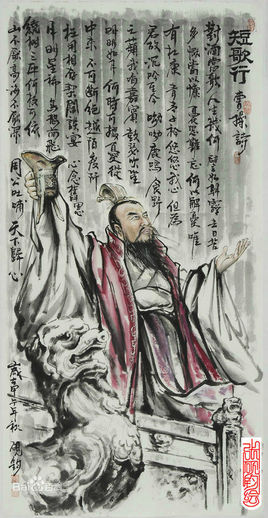 短歌行 曹操詩
對酒當歌人生幾何譬如朝露去日苦
多慨當以慷憂思難忘何以解憂唯
有杜康青青子衿悠悠我心但為
君故沉吟至今呦呦鹿鳴食野
之蘋我有嘉賓鼓瑟吹笙
明明如月何時可掇憂從
中來不可斷絕越陌度阡
枉用相存契闊談讌心念舊恩
月明星稀烏鵲南飛
繞樹三匝何枝可依
山不厭高海不厭深
周公吐哺天下歸心
甲午年秋
Bai百科